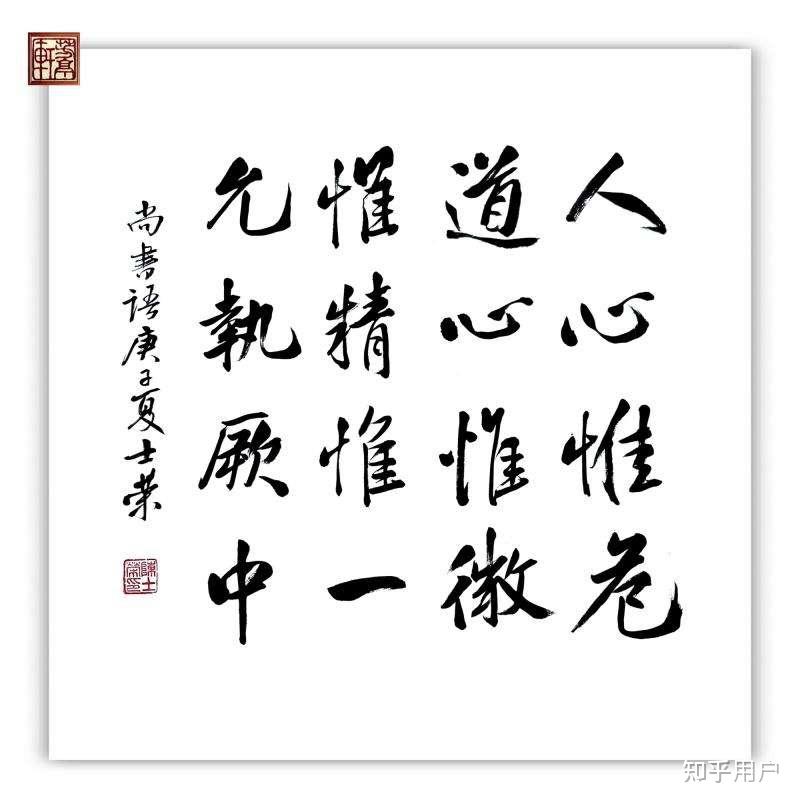 人心惟危
道心惟微
惟精惟一
允執厥中
尚書语庚子夏士荣
陳士荣印
知乎用户